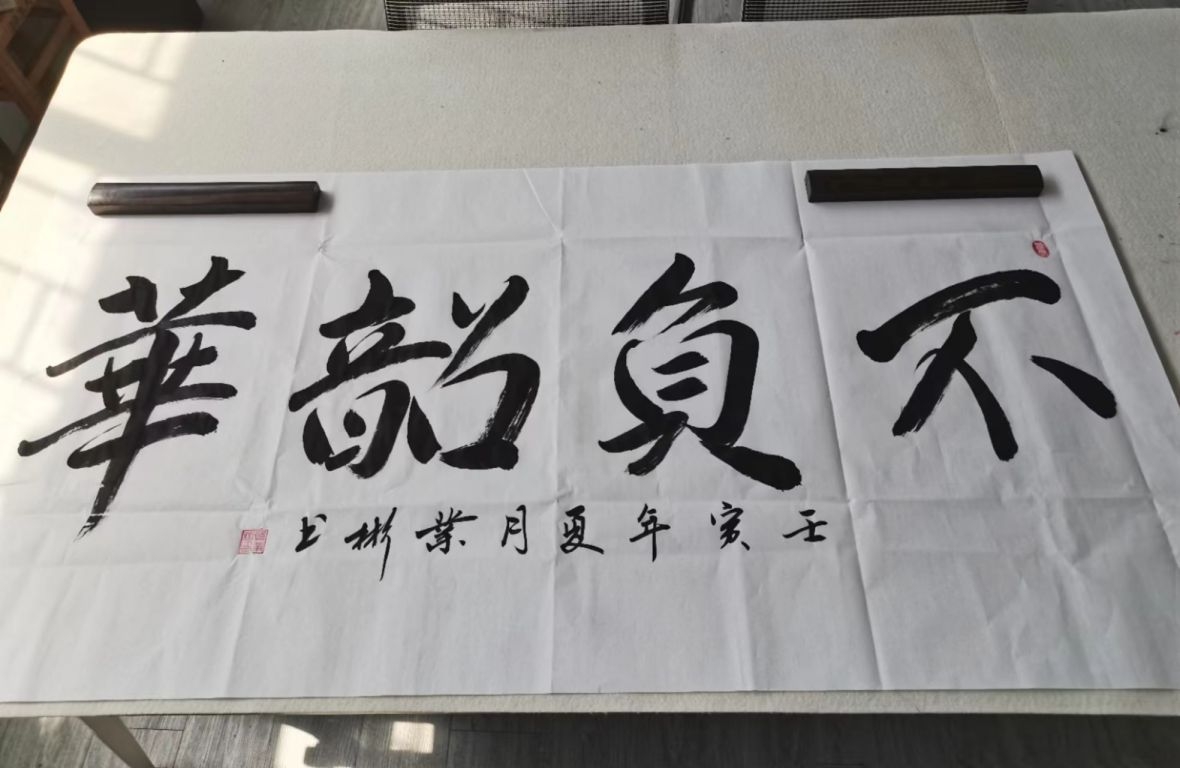 不負韶華
壬寅年夏月業彬书